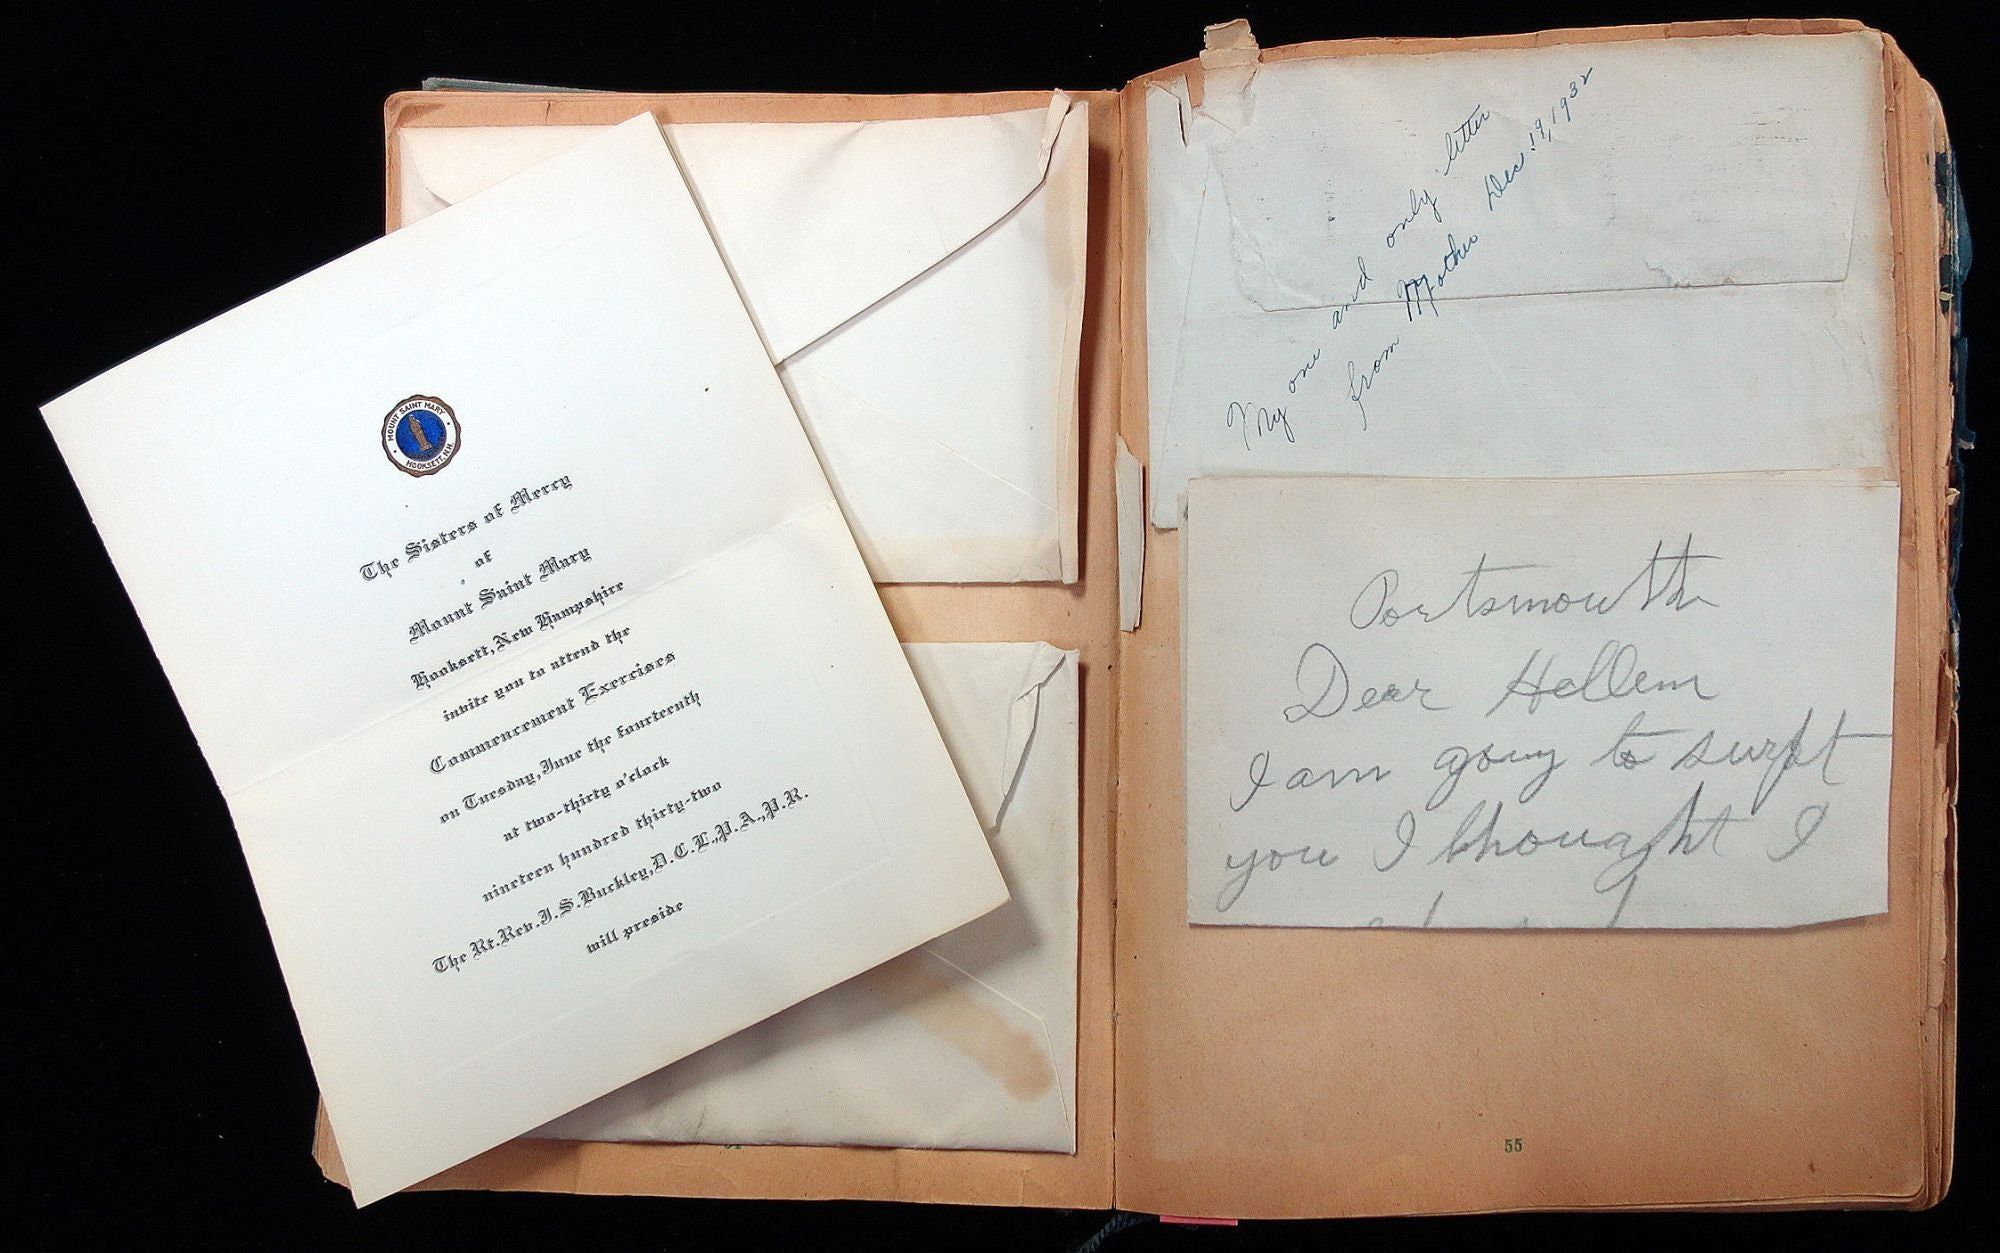 MOUNT SAINT MARY
HOOKSETT, N.H.
The Sisters of Mercy
of
Mount Saint Mary
Hooksett, New Hampshire
invite you to attend the
Commencement Exercises
on Tuesday, June the fourteenth
at two-thirty o'clock
nineteen hundred thirty-two
The Rt. Rev. J. S. Buckley, D. C. L., P. A., P. R.
will preside
My one and only letter
from Mother Dec. 19, 1932
Portsmouth
Dear Hellem
I am going to surpt
you I thought I
55